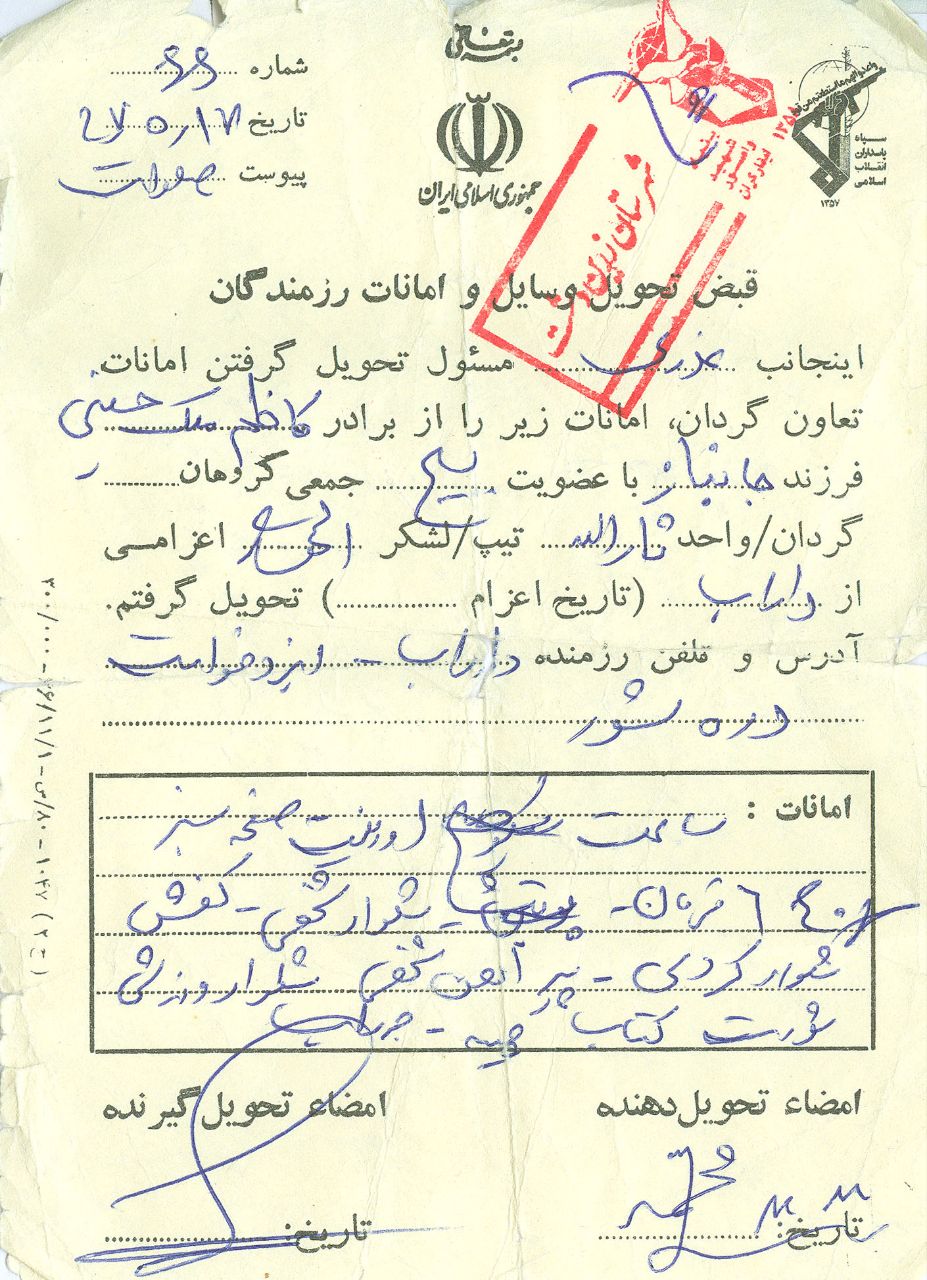 بسمه تعالی
شماره ۶۶
تاریخ ۶۷/۵/۱۷
پیوست
جمهوری اسلامی ایران
سپاه
پاسداران
انقلاب
اسلامی
۱۳۵۷
شهرستان زرین دشت
قبض تحویل وسایل و امانات رزمندگان
اینجانب عذری مسئول تحویل گرفتن امانات
تعاون گردان، امانات زیر را از برادر کاظم ملک حسینی
فرزند جانباز با عضویت بسیج جمعی گروهان
گردان/واحد ثارالله تیپ/لشکر المهدی اعزامی
از داراب (تاریخ اعزام) تحویل گرفتم.
آدرس و تلفن رزمنده داراب - ایزدخواست
دره شور
امانات : ساعت اورینت صفحه سبز
۶ تومان - شلوار کفی - کفش
شلوار کردی - پیراهن شخصی شلوار ورزشی
شورت کتاب - جوراب
امضاء تحویل‌دهنده
امضاء تحویل‌گیرنده
تاریخ:
تاریخ:
۳۰۰/۰۰۰-۶۶/۱۱/۱-۸۰/س-۱۰۴۷ (ج ۲)